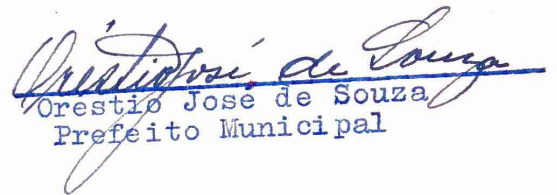 Oréstio José de Souza
Orestio José de Souza
Prefeito Municipal